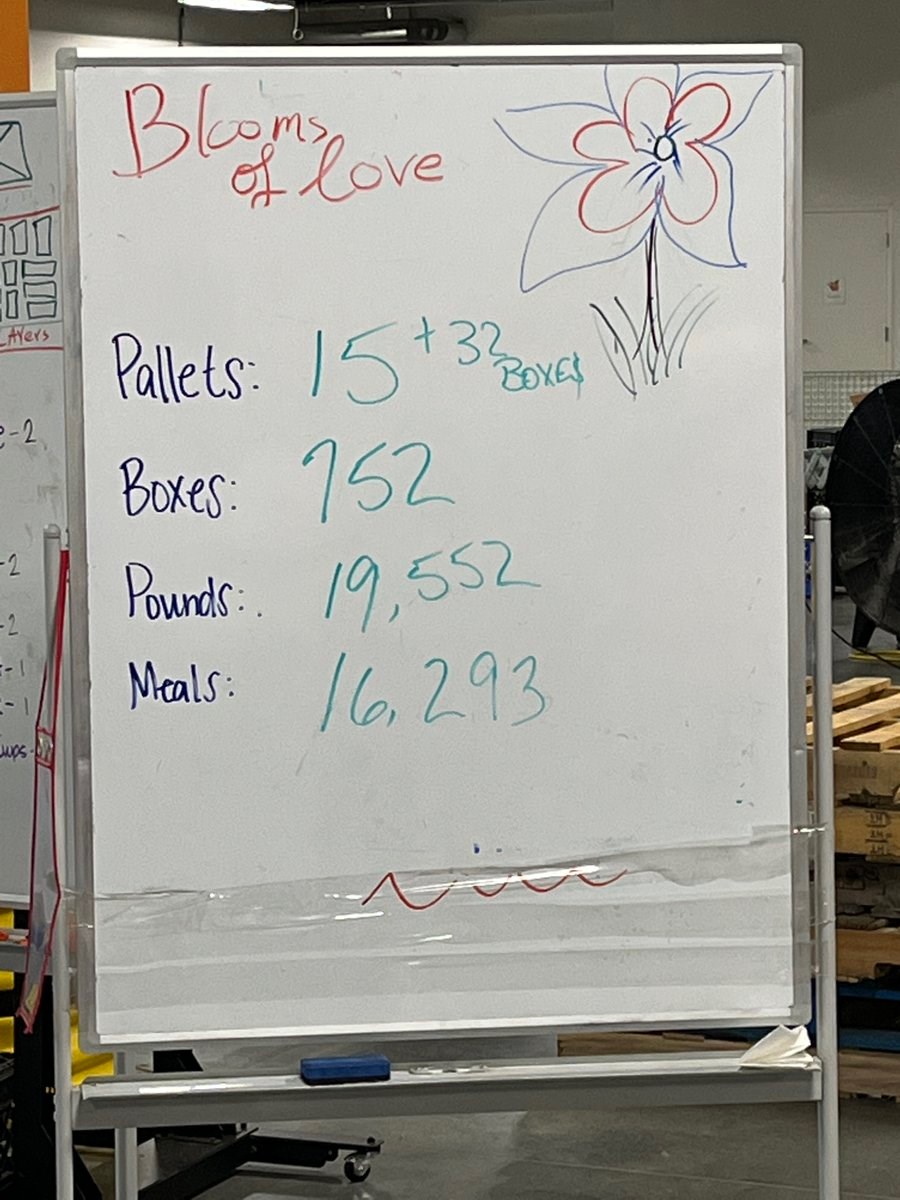 Blooms
of love
Pallets: 15 + 32 BOXES
Boxes: 752
Pounds: 19,552
Meals: 16,293
Layers
-2
-2
-2
-1
-1